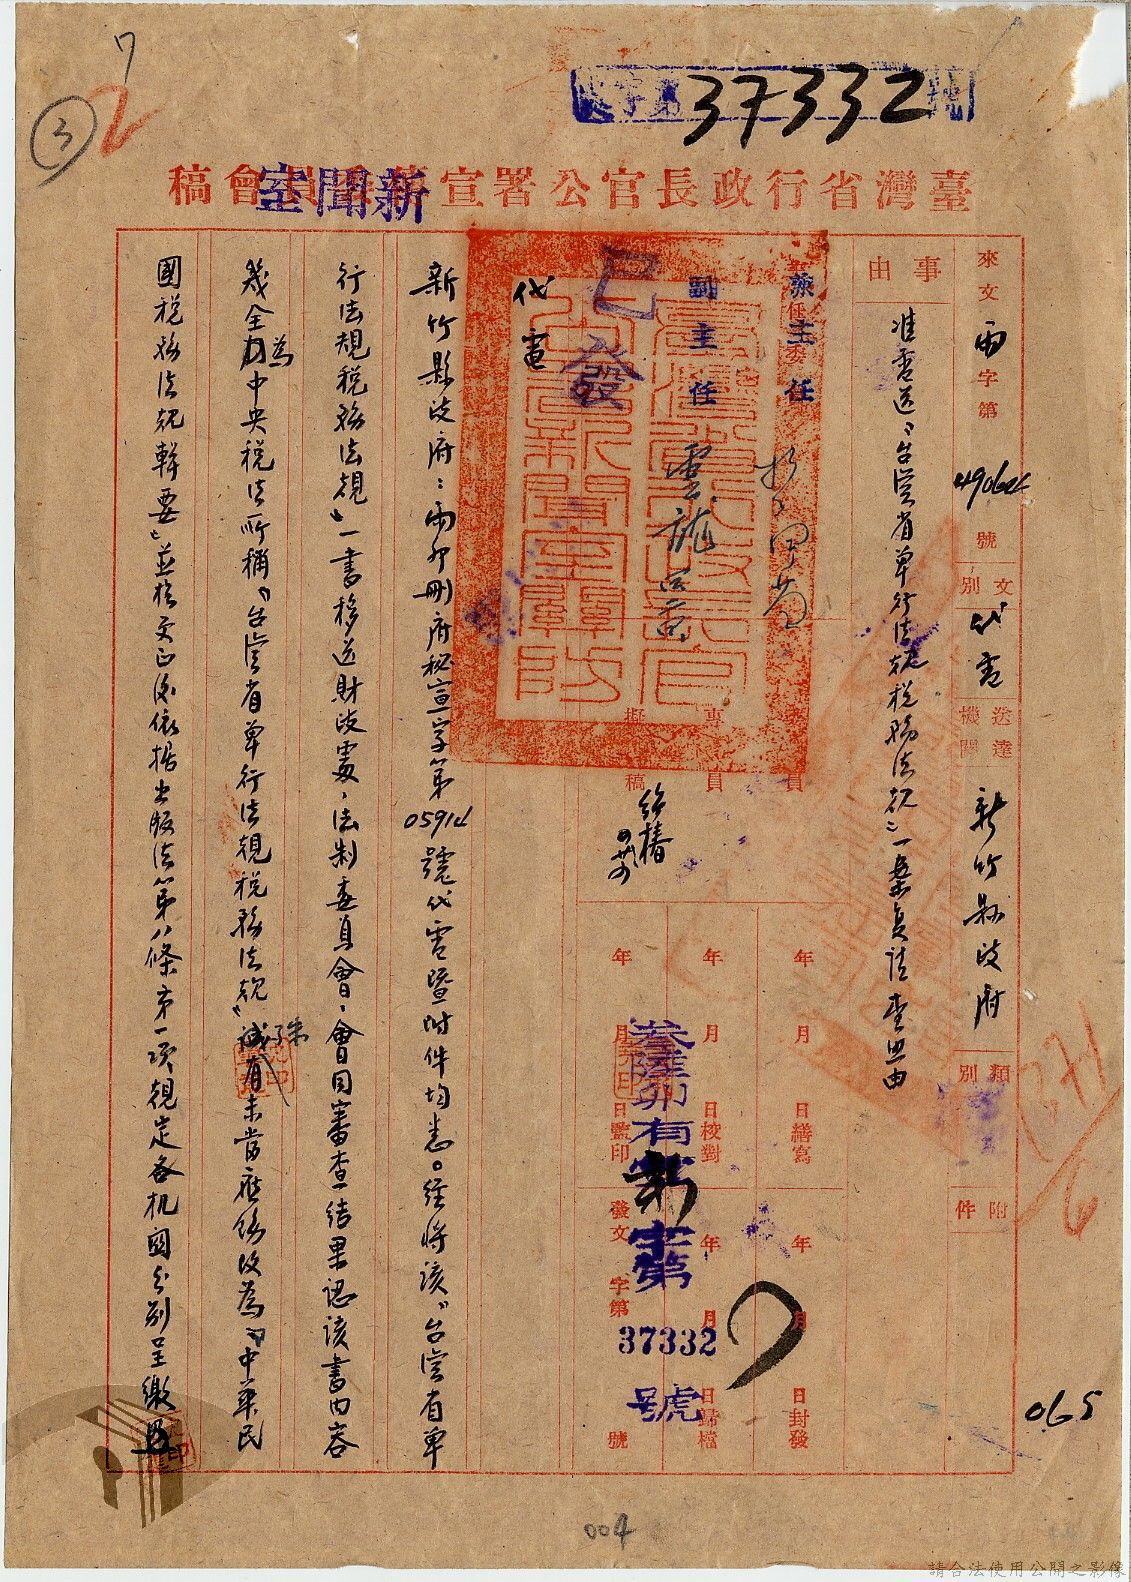 字第37332號
7
2
3
臺灣省行政長官公署宣
新聞室
會稿
來文
字第
49064
號
文別
代電
送達機關
新竹縣政府
類別
附件
事由
准電送「台灣省單行法規稅務法規」一案復請查照由
兼主任
副主任
雲龍
已發
代電
專員
擬稿
年 月 日繕寫
年 月 日校對
年 月 日監印
年 月 日封發
年 月 日歸檔
發文 字第 號
叁陸卯有
新
字第
37332
號
新竹縣政府：卯刪府秘宣字第05914號代電暨附件均悉。經將該「台灣省單
行法規稅務法規」一書移送財政處、法制委員會、會同審查結果認該書內容
幾全為中央稅法所稱「台灣省單行法規稅務法規」殊有未當應飭改為「中華民
國稅務法規輯要」並於更正後依據出版法第八條第一項規定各机關分別呈繳
065
004
請合法使用公開之影像